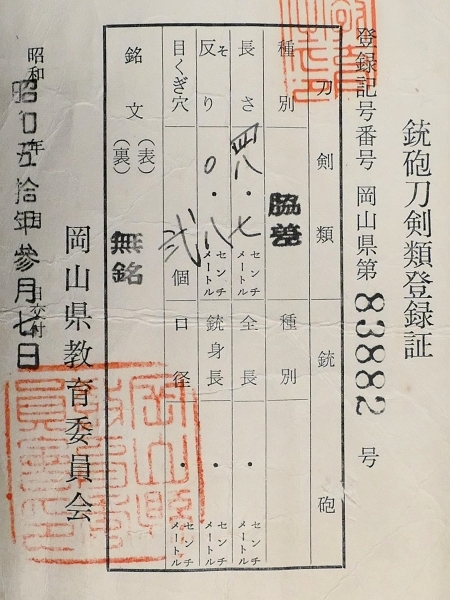 銃砲刀剣類登録証
登録記号番号 岡山県第 83882 号
刀剣類 銃砲
種別 脇差 種別
長さ 四八・七 センチメートル 全長 ・ センチメートル
反り そ 〇・八 センチメートル 銃身長 ・ センチメートル
目くぎ穴 弐 個 口径 ・ センチメートル
銘文 (表) 無銘
(裏)
昭和 年 月 日交付
昭和五拾年参月七日
岡山県教育委員会